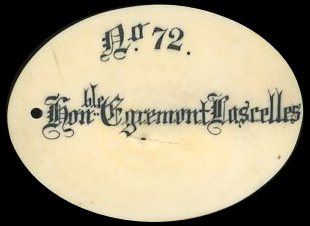 No. 72.
Honble. Egremont Lascelles